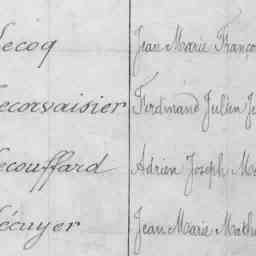 Lecoq Jean Marie Franço
Lecorvaisier Ferdinand Julien Je
Lecouffard Adrien Joseph Ma
Lécuyer Jean Marie Mathu